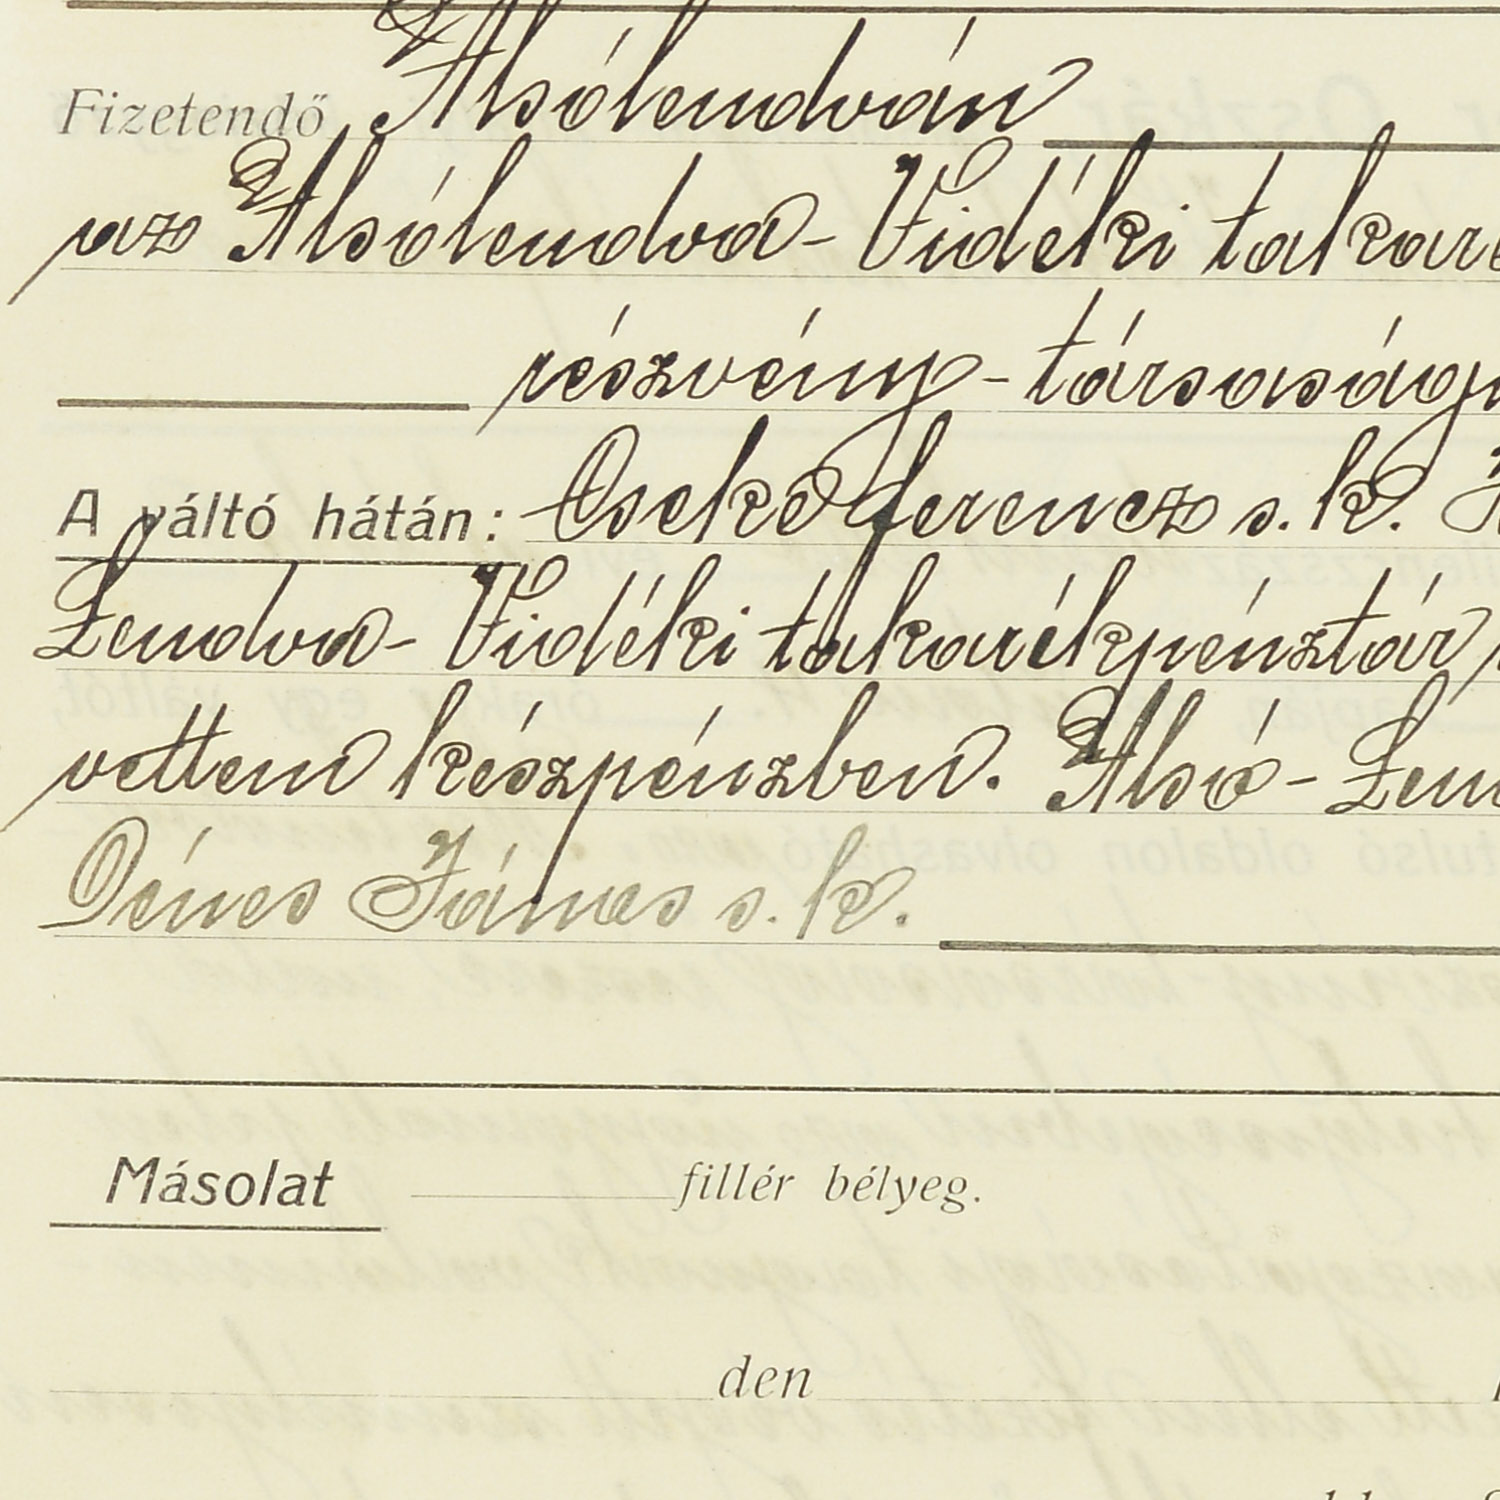 Fizetendő Alsólendván
az Alsólendva-Vidéki takaré
részvény-társaság
A váltó hátán: Cseke Ferencz s. k.
Lendva-Vidéki takarékpénztár
vettem készpénzben. Alsó-Len
Dénes János s. k.
Másolat fillér bélyeg.
den